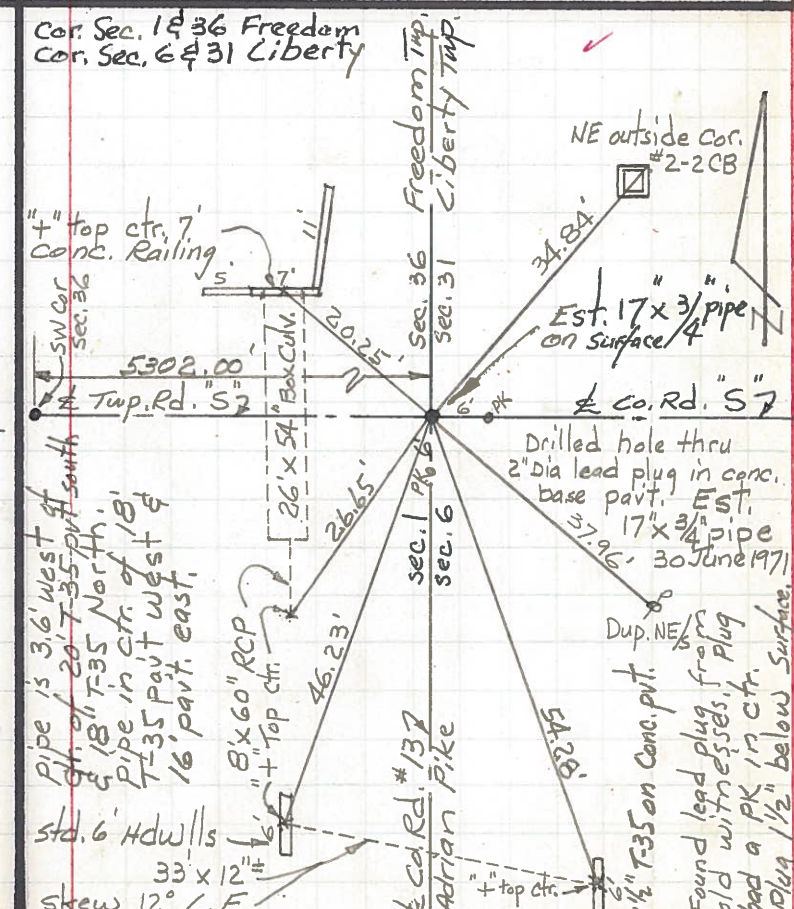 Cor. Sec. 1 & 36 Freedom
Cor. Sec. 6 & 31 Liberty
Freedom Twp.
Liberty Twp.
Sec. 36
Sec. 31
NE outside Cor.
#2-2CB
34.84'
"+" top ctr. 7'
Conc. Railing
5'
7'
11'
20.25'
SW Cor
Sec. 36
5302.00'
Est. 17" x 3/4" pipe
on Surface
N
℄ Twp. Rd. "S"
6'
PK
℄ Co. Rd. "S"
26' x 54" Box Culv.
26.65'
PK 6'
Sec. 1
Sec. 6
Drilled hole thru
2" Dia lead plug in conc.
base pavt. Est.
17" x 3/4" pipe
30 June 1971
37.96'
Dup. NE/S
pipe is 3.6' west of
ctr. of 20' T-35 pvt south
& 18' T-35 North.
Pipe in ctr. of 18'
T-35 pavt west &
16' pavt. east.
8' x 60" RCP
"+" Top ctr.
46.23'
54.28'
std. 6' Hdwlls
6'
33' x 12"
skew 12°
℄ Co. Rd. #137
Adrian Pike
"+" top ctr.
6'
1/2" T-35 on Conc. pvt.
Found lead plug from
old witnesses. Plug
had a PK in ctr.
Plug 1 1/2" below Surface.